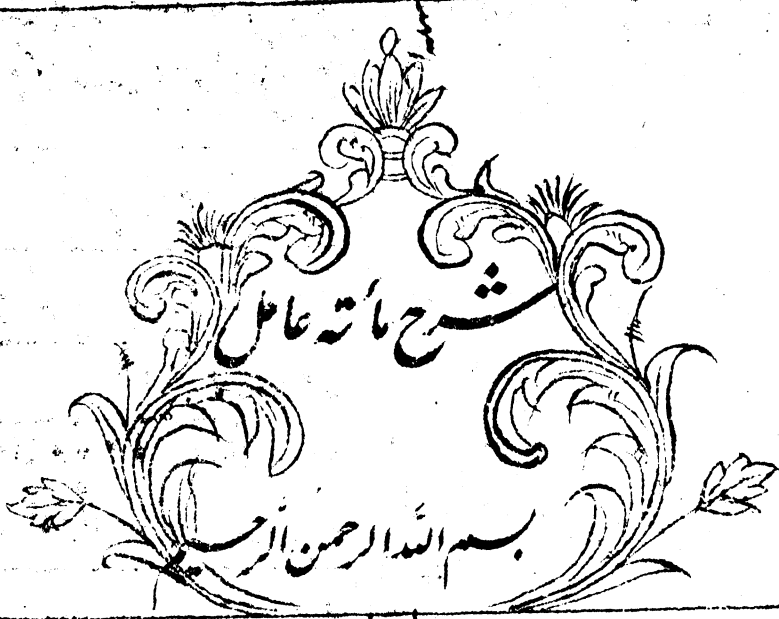 شرح مأته عامل
بسم الله الرحمن الرحیم